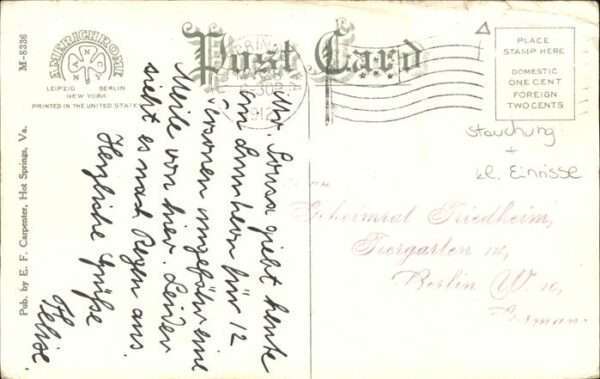 M-8336
AMERICHROME
ANC
LEIPZIG BERLIN
NEW YORK
PRINTED IN THE UNITED STATES
Post Card
PLACE
STAMP HERE
DOMESTIC
ONE CENT
FOREIGN
TWO CENTS
Pub. by E. F. Carpenter, Hot Springs, Va.
Mr. giebt heute
ein für 12
Personen ungefähr eine
Meile von hier. Leider
sieht es nach Regen aus.
Herzliche Grüße
Felise.
Stauchung
+
kl. Einrisse
Geheimrat Friedheim,
Tiergarten
Berlin W. 10,
German